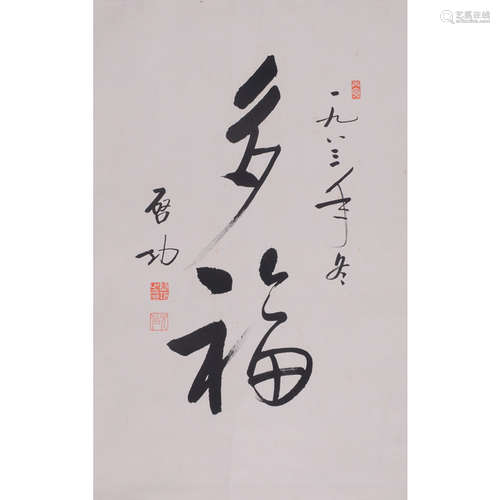 一九八三年冬
多福
启功
艺狐在线